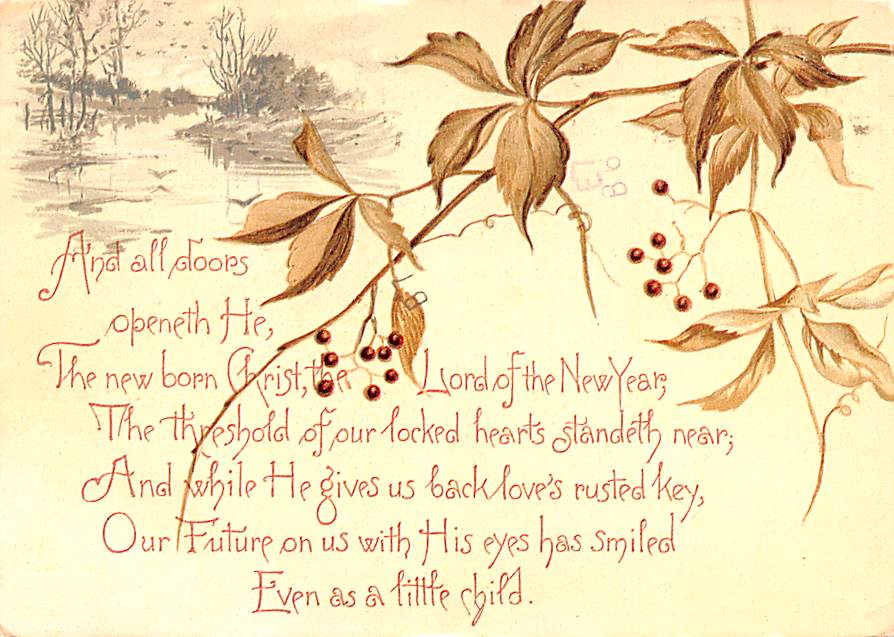 And all doors
openeth He,
The new born Christ, the Lord of the New Year;
The threshold of our locked hearts standeth near;
And while He gives us back love's rusted key,
Our Future on us with His eyes has smiled
Even as a little child.